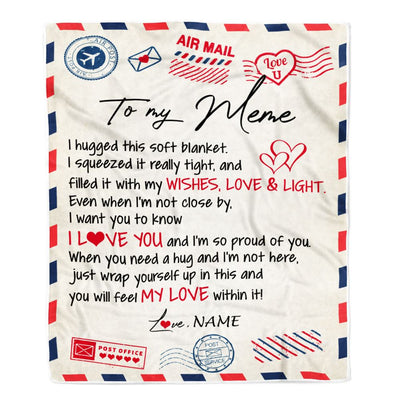 AIR POST
AIR MAIL
Love
U
To my Meme
I hugged this soft blanket.
I squeezed it really tight, and
filled it with my WISHES, LOVE & LIGHT.
Even when I'm not close by,
I want you to know
I L❤VE YOU and I'm so proud of you.
When you need a hug and I'm not here,
just wrap yourself up in this and
you will feel MY LOVE within it!
Love, NAME
POST OFFICE
POST
SERVICE